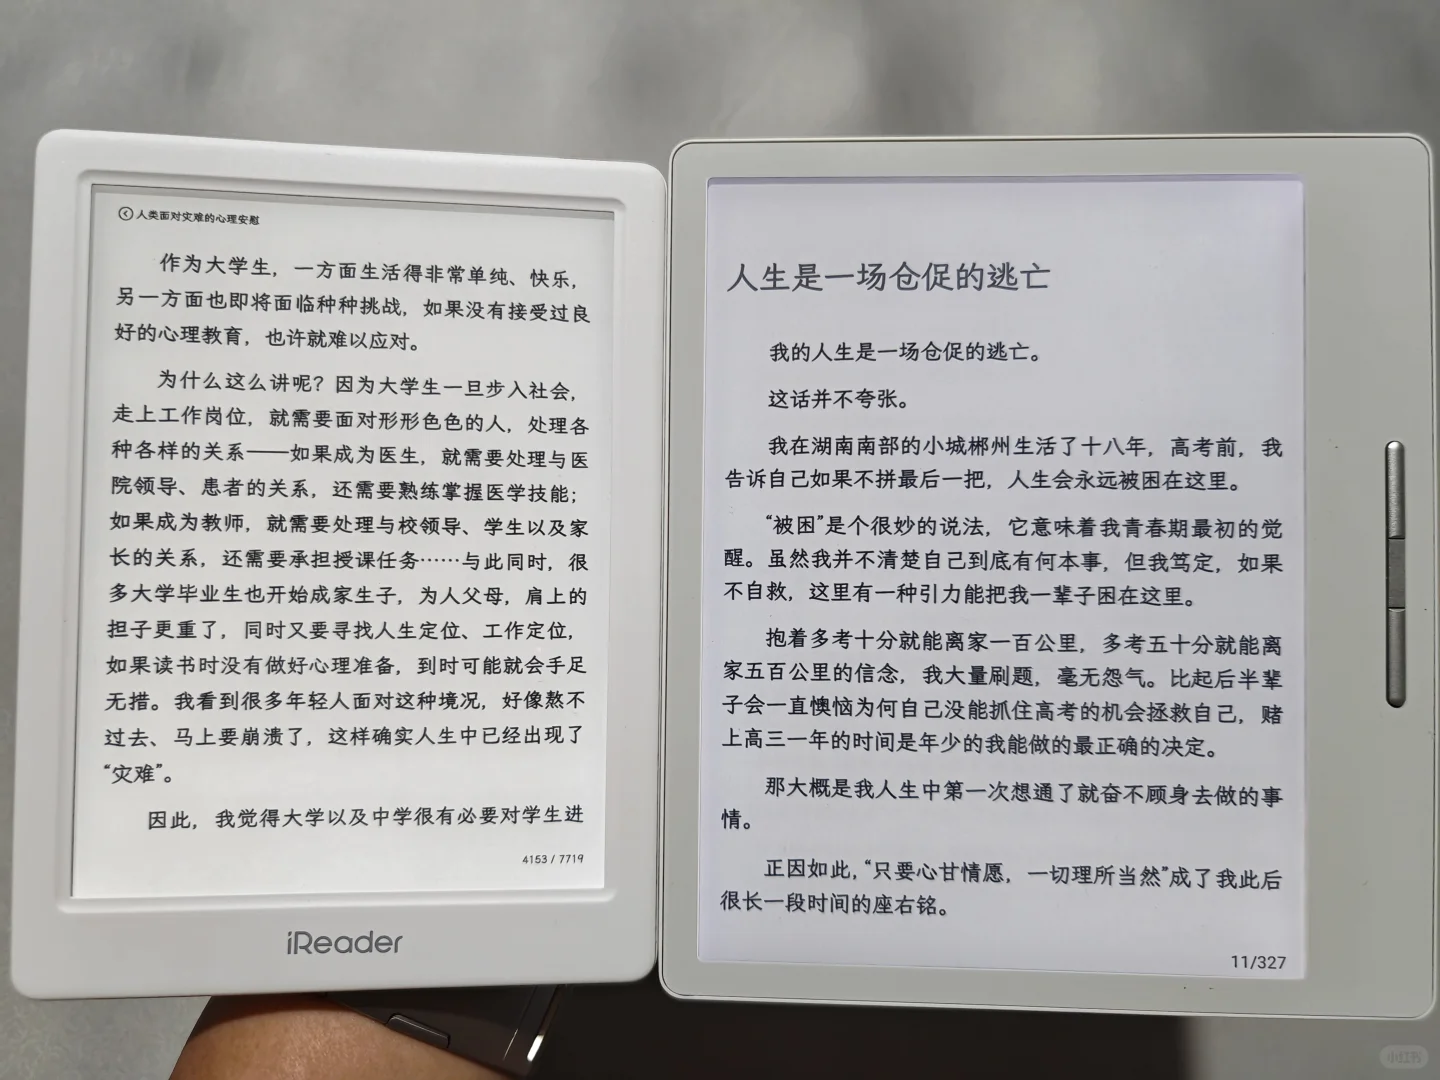 人类面对灾难的心理安慰
作为大学生，一方面生活得非常单纯、快乐，
另一方面也即将面临种种挑战，如果没有接受过良
好的心理教育，也许就难以应对。
为什么这么讲呢？因为大学生一旦步入社会，
走上工作岗位，就需要面对形形色色的人，处理各
种各样的关系——如果成为医生，就需要处理与医
院领导、患者的关系，还需要熟练掌握医学技能；
如果成为教师，就需要处理与校领导、学生以及家
长的关系，还需要承担授课任务……与此同时，很
多大学毕业生也开始成家生子，为人父母，肩上的
担子更重了，同时又要寻找人生定位、工作定位，
如果读书时没有做好心理准备，到时可能就会手足
无措。我看到很多年轻人面对这种境况，好像熬不
过去、马上要崩溃了，这样确实人生中已经出现了
“灾难”。
因此，我觉得大学以及中学很有必要对学生进
4153 / 7719
iReader
人生是一场仓促的逃亡
我的人生是一场仓促的逃亡。
这话并不夸张。
我在湖南南部的小城郴州生活了十八年，高考前，我
告诉自己如果不拼最后一把，人生会永远被困在这里。
“被困”是个很妙的说法，它意味着我青春期最初的觉
醒。虽然我并不清楚自己到底有何本事，但我笃定，如果
不自救，这里有一种引力能把我一辈子困在这里。
抱着多考十分就能离家一百公里，多考五十分就能离
家五百公里的信念，我大量刷题，毫无怨气。比起后半辈
子会一直懊恼为何自己没能抓住高考的机会拯救自己，赌
上高三一年的时间是年少的我能做的最正确的决定。
那大概是我人生中第一次想通了就奋不顾身去做的事
情。
正因如此，“只要心甘情愿，一切理所当然”成了我此后
很长一段时间的座右铭。
11/327
小红书